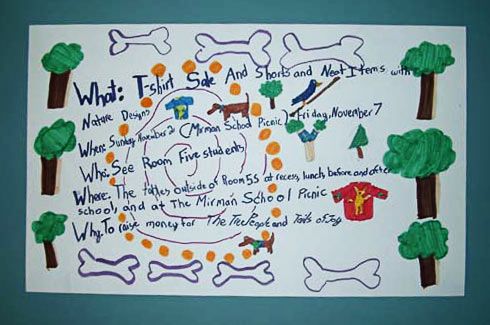 What: T-shirt Sale And Shorts and Neat Items with
Nature Designs
When: Sunday, November 2 (Mirman School Picnic) Friday, November 7
Who: See Room Five students
Where: The tables outside of Room 55 at recess, lunch, before and after
school, and at The Mirman School Picnic
Why: To raise money for The Tree and Tails of Joy